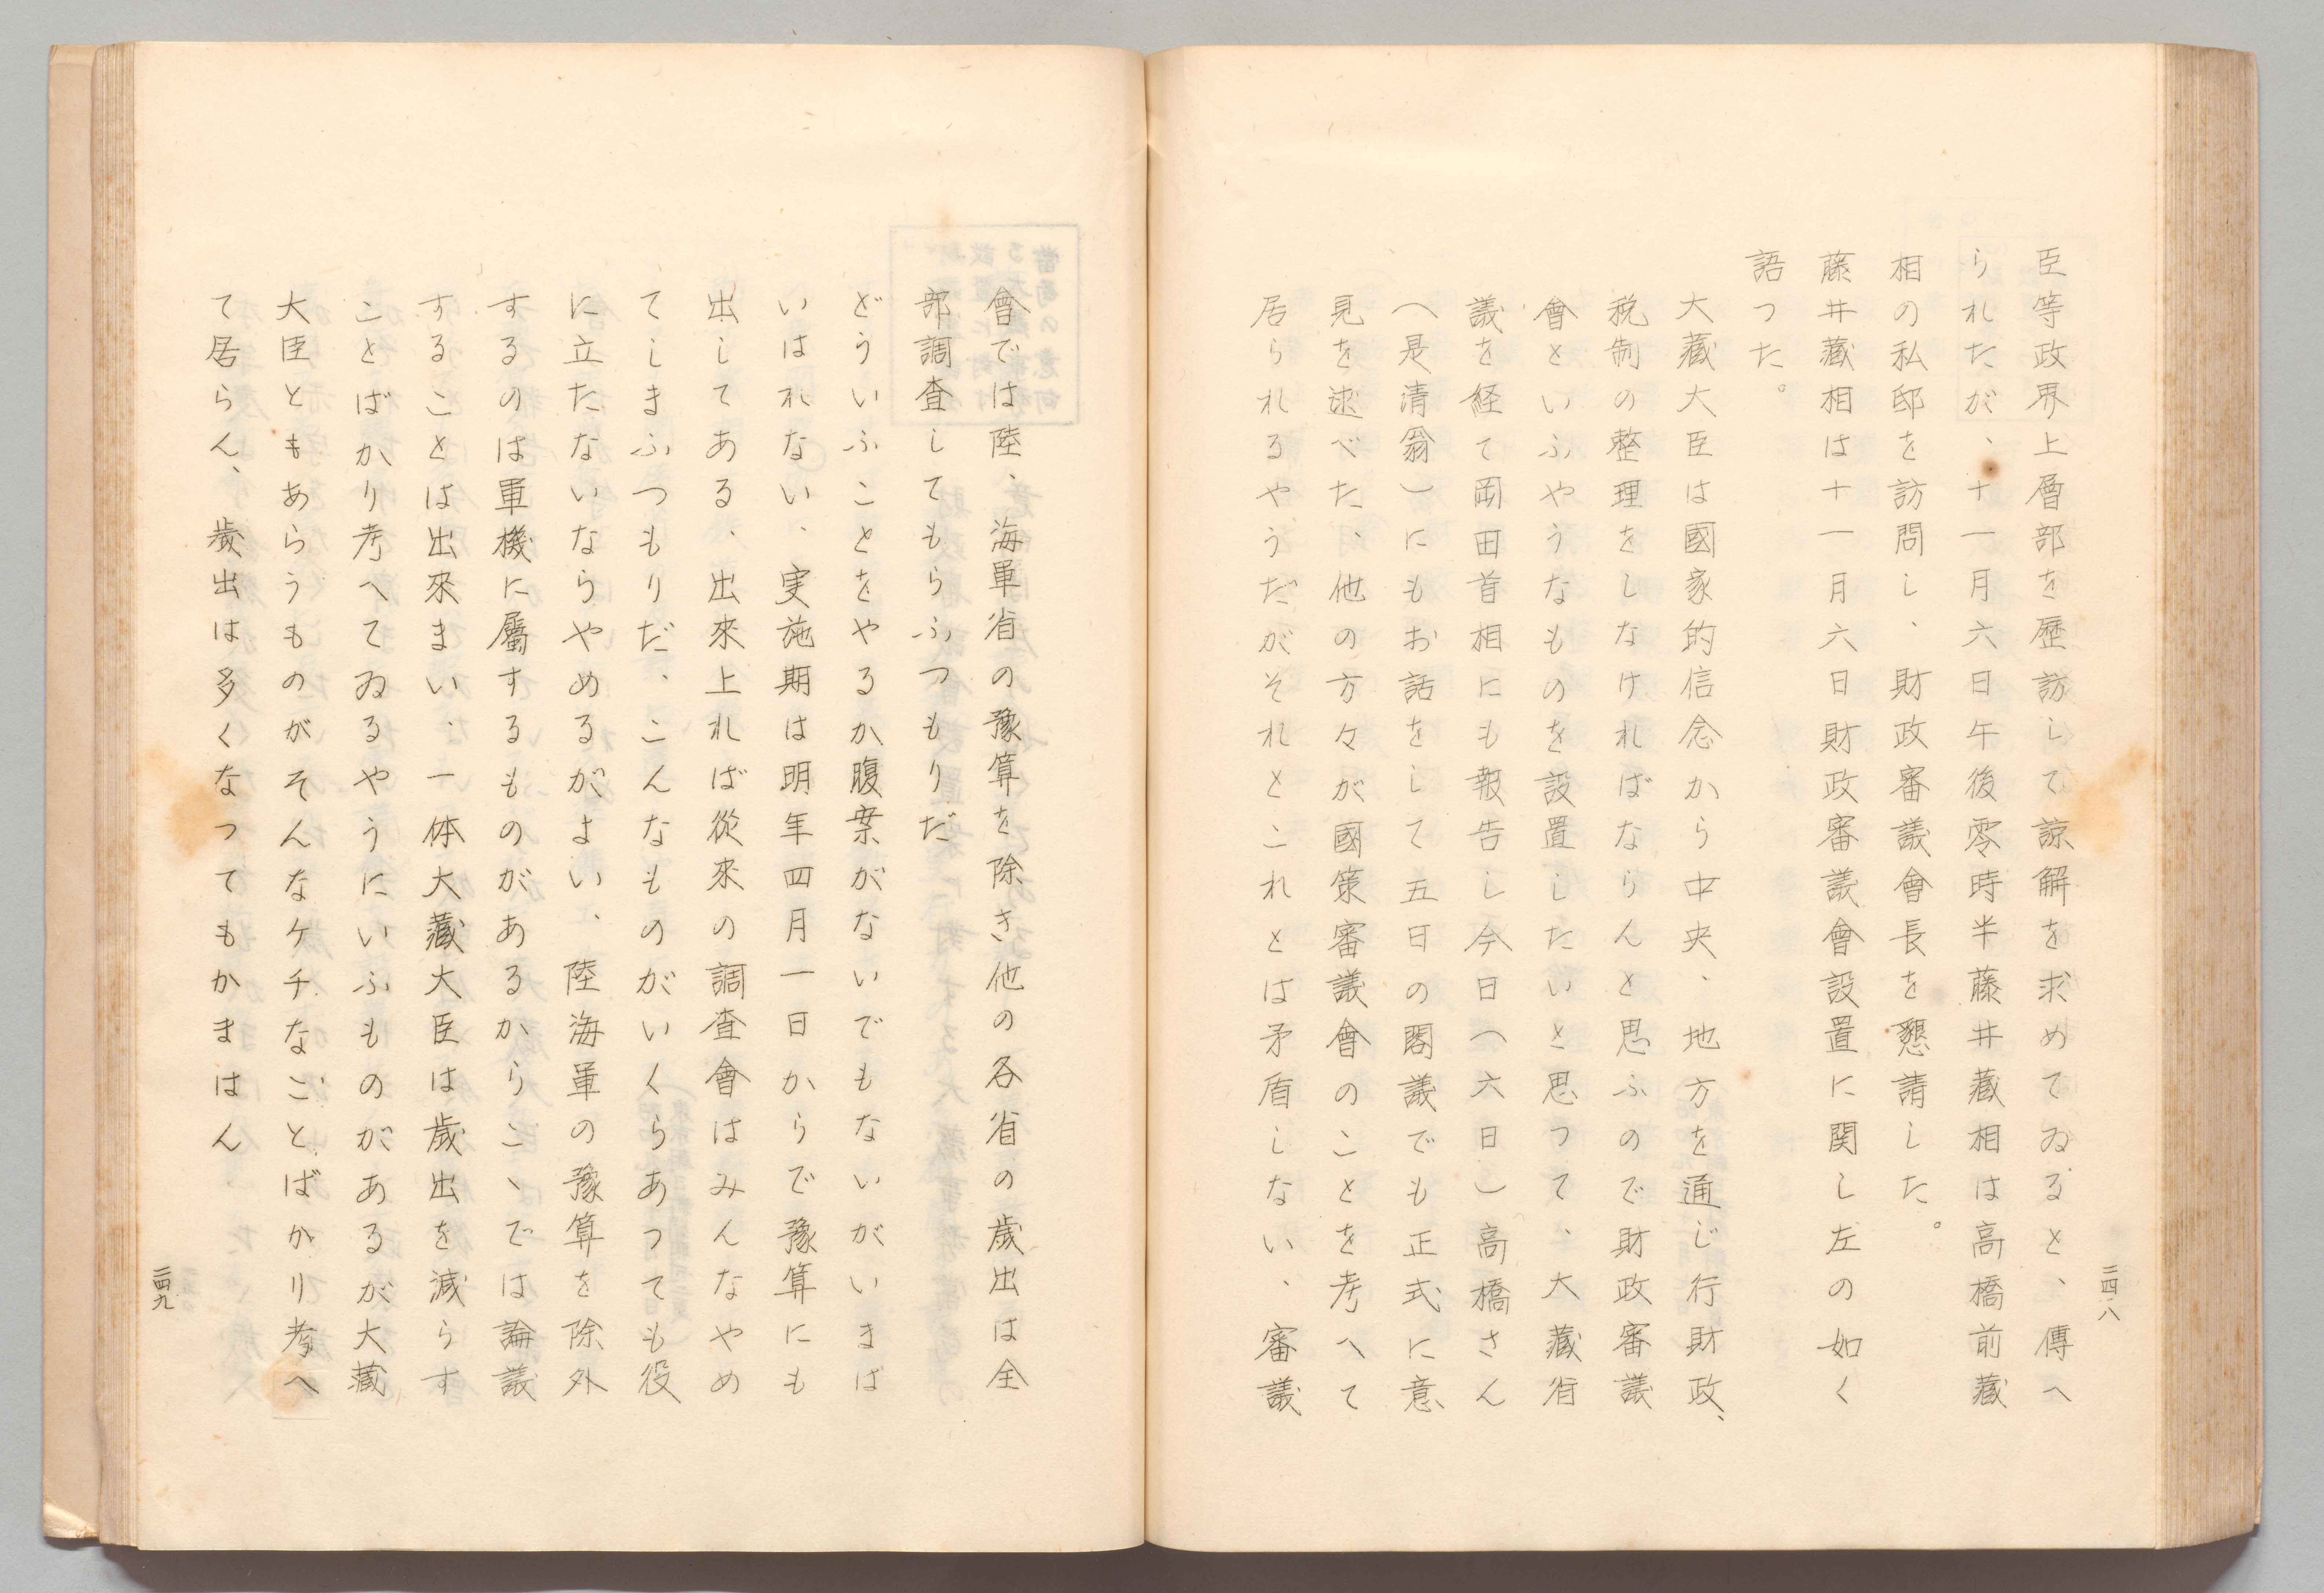 臣等政界上層部を歴訪して諒解を求めてゐると、傳へ
られたが、十一月六日午後零時半藤井藏相は高橋前藏
相の私邸を訪問し、財政審議會長を懇請した。
藤井藏相は十一月六日財政審議會設置に関し左の如く
語つた。
大藏大臣は國家的信念から中央、地方を通じ行財政、
税制の整理をしなければならんと思ふので財政審議
會といふやうなものを設置したいと思つて、大藏省
議を経て岡田首相にも報告し今日（六日）高橋さん
（是清翁）にもお話をして五日の閣議でも正式に意
見を述べた、他の方々が國策審議會のことを考へて
居られるやうだがそれとこれとは矛盾しない、審議
二四八
會では陸、海軍省の豫算を除き他の各省の歳出は全
部調査してもらふつもりだ
どういふことをやるか腹案がないでもないがいまば
いはれない、実施期は明年四月一日からで豫算にも
出してある、出來上れば從來の調査會はみんなやめ
てしまふつもりだ、こんなものがいくらあつても役
に立たないならやめるがよい、陸海軍の豫算を除外
するのは軍機に屬するものがあるからこゝでは論議
することは出來まい、一体大藏大臣は歳出を減らす
ことばかり考へてゐるやうにいふものがあるが大藏
大臣ともあらうものがそんなケチなことばかり考へ
て居らん、歳出は多くなつてもかまはん
二四九